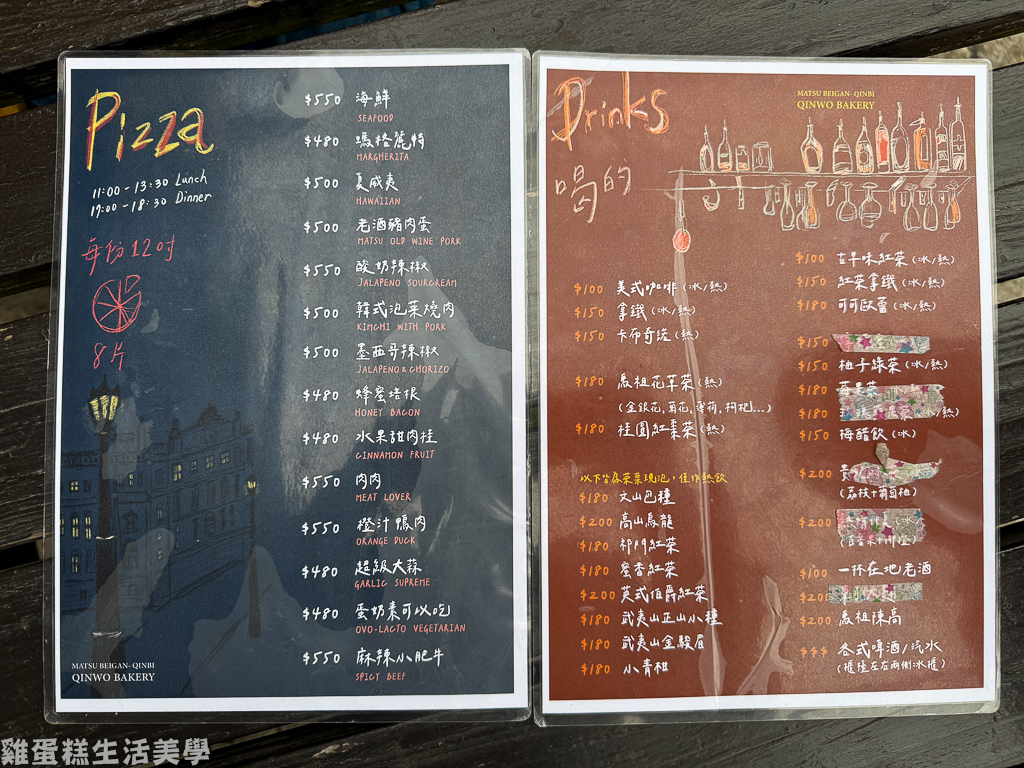 Pizza
11:00-13:30 Lunch
17:00-18:30 Dinner
每份12吋
8片
$550 海鮮
SEAFOOD
$480 瑪格麗特
MARGHERITA
$500 夏威夷
HAWAIIAN
$500 老酒豬肉蛋
MATSU OLD WINE PORK
$550 酸奶辣椒
JALAPENO SOURCREAM
$500 韓式泡菜燒肉
KIMCHI WITH PORK
$500 墨西哥辣椒
JALAPENO & CHORIZO
$480 蜂蜜培根
HONEY BACON
$480 水果甜肉桂
CINNAMON FRUIT
$550 肉肉
MEAT LOVER
$550 橙汁鴨肉
ORANGE DUCK
$480 超級大蒜
GARLIC SUPREME
$480 蛋奶素可以吃
OVO-LACTO VEGETARIAN
$550 麻辣小肥牛
SPICY BEEF
MATSU BEIGAN- QINBI
QINWO BAKERY
Drinks
喝的
MATSU BEIGAN- QINBI
QINWO BAKERY
$100 美式咖啡(冰/熱)
$150 拿鐵(冰/熱)
$150 卡布奇諾(熱)
$180 馬祖花草茶(熱)
(金銀花,菊花,薄荷,枸杞...)
$180 桂圓紅棗茶(熱)
以下皆為茶葉現泡,僅作熱飲
$180 文山包種
$200 高山烏龍
$180 祁門紅茶
$180 蜜香紅茶
$200 英式伯爵紅茶
$180 武夷山正山小種
$180 武夷山金駿眉
$180 小青柑
$100 古早味紅茶(冰/熱)
$150 紅茶拿鐵(冰/熱)
$180 可可歐蕾(冰/熱)
$150
$150 柚子綠茶(冰/熱)
$180
$180 /熱)
$150 梅醋飲(冰)
$200
(荔枝+葡萄柚)
$200
$100 一杯在地老酒
$200
$200 馬祖陳高
$$$ 各式啤酒/汽水
(櫃檯左右兩側冰櫃)
雞蛋糕生活美學